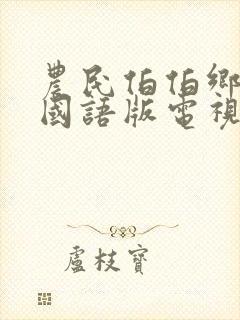 農民伯伯鄉
國語版電視
盧枝寶